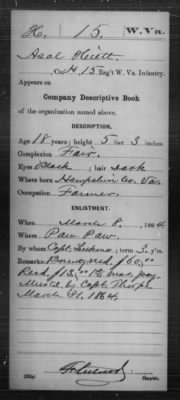 H. 15. W. Va.
Asal Hiett
Co. H, 15 Reg't W. Va. Infantry.
Appears on
Company Descriptive Book
of the organization named above.
DESCRIPTION.
Age 18 years; height 5 feet 3 inches.
Complexion Fair.
Eyes Black; hair Dark
Where born Hampshire Co. Va.
Occupation Farmer.
ENLISTMENT.
When March 8, 1864
Where Paw Paw.
By whom Capt. ; term 3 y'rs.
Remarks: Bounty rcd. $60.00
Recd. $13.00 1st mo. pay.
Must'd by Capt. Thorpe
March 31. 1864.
Copyist.